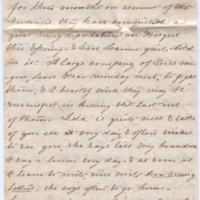 for three months on account of the
Indians they have committed a
great many depredations on Niagra
this Spring & have become quite bold
in it. A large company of Texas ran
gers, leave here monday next, to fight
them, & I heartily wish they may be
successful in killing the last one
of them. Lela is quite well & talks
of you all every day & often wishes
to see you, she says tell my Grandma
I say a lesson every day & as soon as
I learn to write will write her a long
letter, she says often to go home